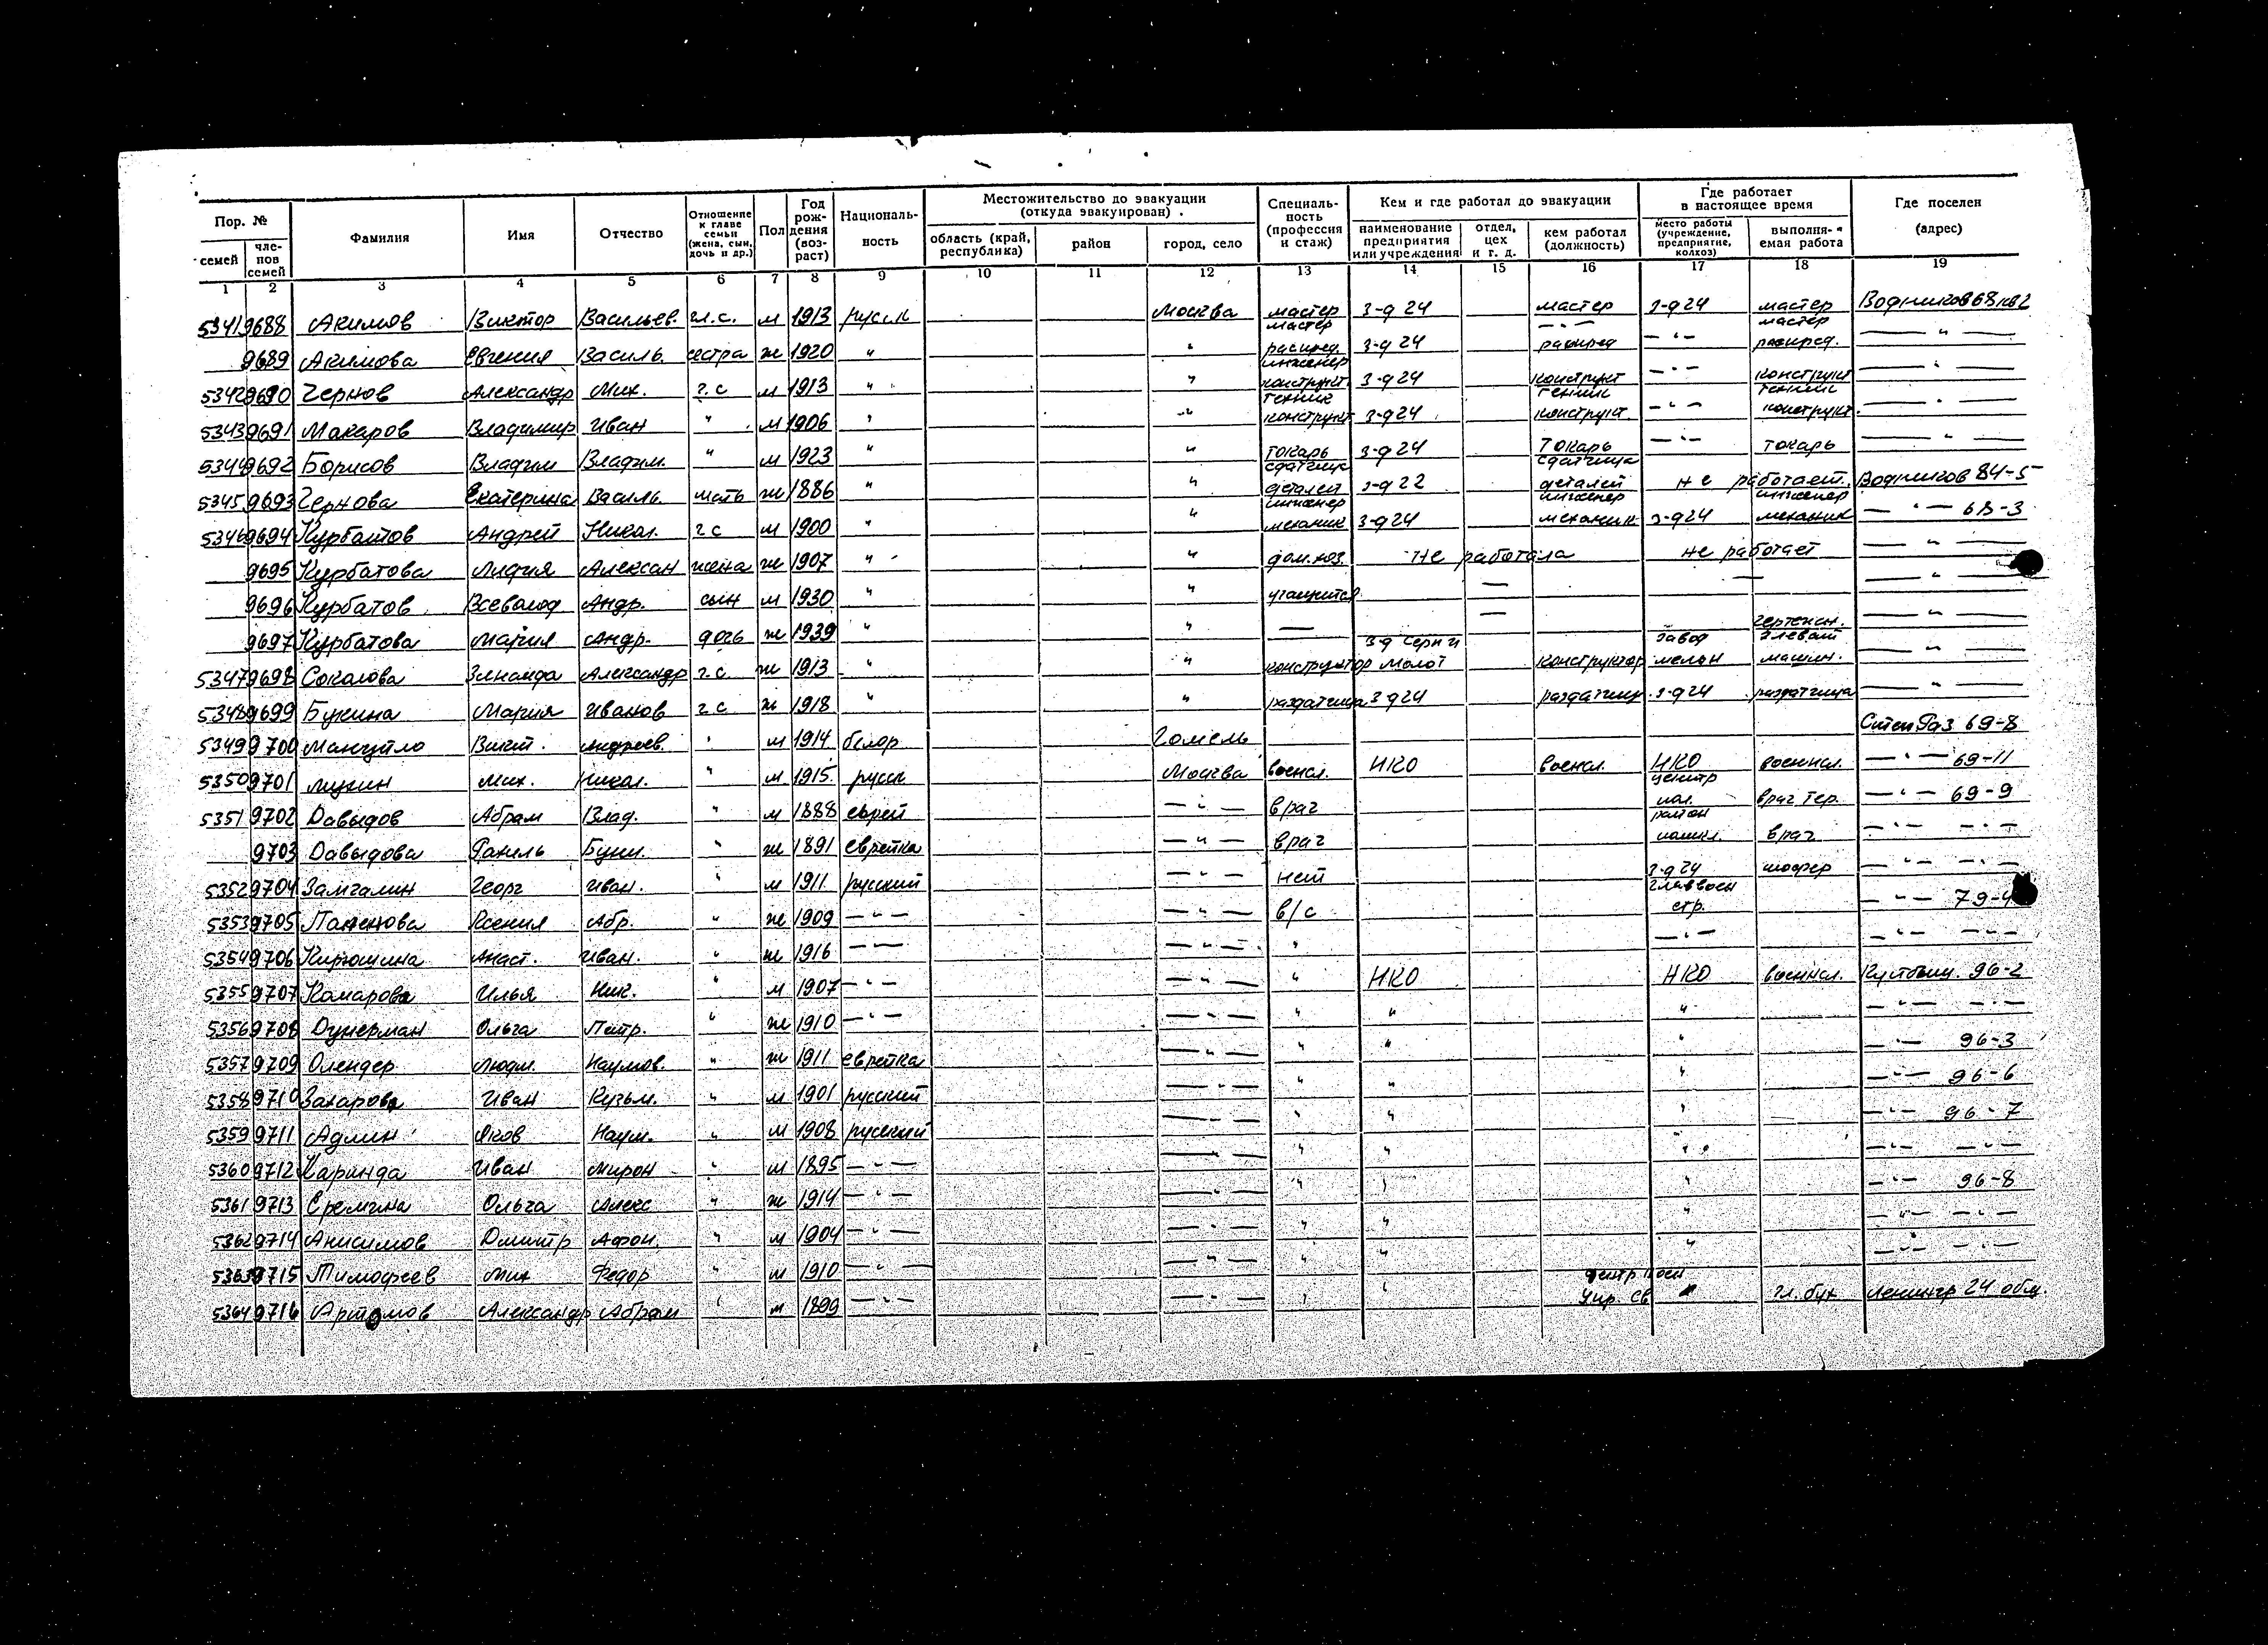 Пор. № Фамилия Имя Отчество Отношение к главе семьи (жена, сын, дочь и др.) Пол Год рождения (возраст) Националь-ность Местожительство до эвакуации (откуда эвакуирован) Специаль-ность (профессия и стаж) Кем и где работал до эвакуации Где работает в настоящее время Где поселен (адрес)
семей чле-нов семей область (край, республика) район город, село наименование предприятия или учреждения отдел, цех и т. д. кем работал (должность) место работы (учреждение, предприятие, колхоз) выполня-емая работа
1 2 3 4 5 6 7 8 9 10 11 12 13 14 15 16 17 18 19
5341 9688 Акимов Виктор Васильев. г.с. м 1913 русск Москва мастер 3-д 24 мастер 3-д 24 мастер Водников 68 кв 2
9689 Акимова Евгения Василь. сестра ж 1920 " " мастер распред. 3-д 24 — " — распред — " — мастер распред. — " —
5342 9690 Чернов Александр Мих. г.с м 1913 " " инженер конструкт. 3-д 24 конструкт — " — конструкт — " —
5343 9691 Макаров Владимир Иван " м 1906 " " техник конструкт 3-д 24 техник конструкт. — " — техник конструкт. — " —
5344 9692 Борисов Владим Владим. " м 1923 " " токарь 3-д 24 токарь — " — токарь — " —
5345 9693 Чернова Екатерина Василь. мать ж 1886 " " сдатчица деталей 3-д 22 сдатчица деталей не работает. Водников 84-5
5346 9694 Курбатов Андрей Никол. г с м 1900 " " инженер механик 3-д 24 инженер механик 3-д 24 инженер механик — " — 68-3
9695 Курбатова Лидия Алексан жена ж 1907 " " дом.хоз. не работала не работает — " —
9696 Курбатов Всеволод Андр. сын м 1930 " " учащийся — — — " —
9697 Курбатова Мария Андр. дочь ж 1939 " " — — — " —
5347 9698 Соколова Зинаида Александр г.с. ж 1913 " " конструктор 3-д Серп и Молот конструктор завод мельн чертежн. элеват машин. — " —
5348 9699 Букина Мария Иванов г с ж 1918 " " раздатчица 3-д 24 раздатчица 3-д 24 раздатчица — " —
5349 9700 Андреев. " м 1914 белор Гомель 69-8
5350 9701 Лукин Мих. Никол. " м 1915 русск Москва военсл. НКО военсл. НКО военнсл. — " — 69-11
5351 9702 Давыдов Абрам Влад. " м 1888 еврей — " — врач центр пол. врач тер. — " — 69-9
9703 Давыдова Рахиль " ж 1891 еврейка — " — врач район врач — " — — " —
5352 9704 Замгалин Георг Иван. " м 1911 русский — " — нет 3-д 24 шофер — " — — " —
5353 9705 Ксения Абр. " ж 1909 — " — — " — в/с главвоен стр. — " — 79-4
5354 9706 Кирюшина Анаст. Иван. " ж 1916 — " — — " — " — " — — " — — " —
5355 9707 Комарова Илья Ник. " м 1907 — " — — " — " НКО НКО военнсл. 96-2
5356 9708 Дунерман Ольга Петр. " ж 1910 — " — — " — " " " — " — — " —
5357 9709 Олендер Людм. Наумов. " ж 1911 еврейка — " — " " " — " — 96-3
5358 9710 Захарова Иван Кузьм. " м 1901 русский — " — " " " — " — 96-6
5359 9711 Адлин Яков Наум. " м 1908 русский — " — " " " — " — 96-7
5360 9712 Каринда Иван Мирон " м 1895 — " — — " — " " " " — " — — " —
5361 9713 Еремина Ольга Алекс " ж 1914 — " — — " — " " " — " — 96-8
5362 9714 Анисимов Дмитр Афон. " м 1904 — " — — " — " " " — " — — " —
5363 9715 Тимофеев Мих Федор " м 1910 — " — — " — " " " — " — — " —
5364 9716 Артомов Александр Абрам " м 1899 — " — " " центр воен Упр. св гл. бух Ленингр 24 общ.